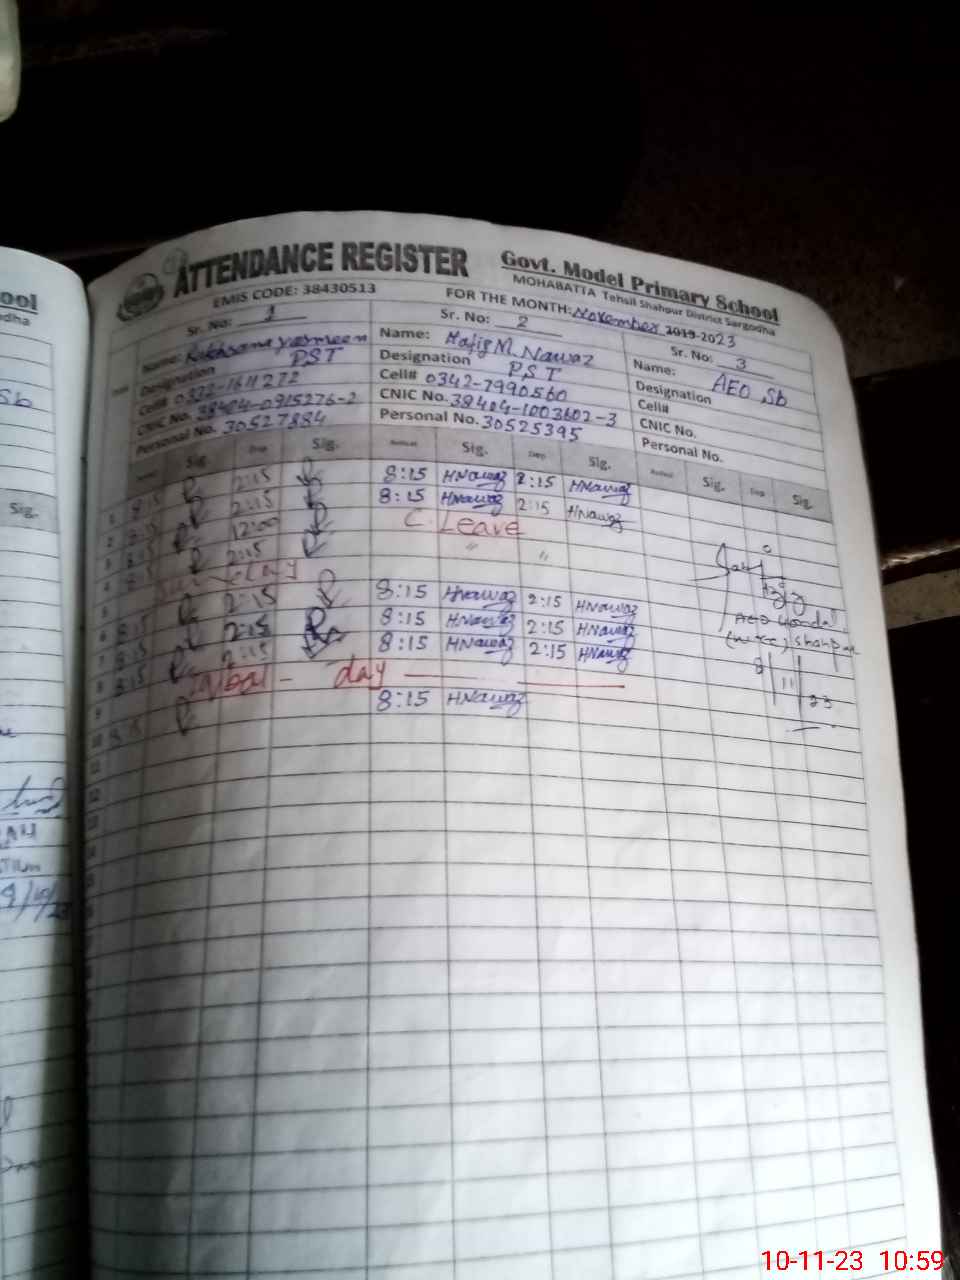 ool
dha
Sb
Sig.
ATTENDANCE REGISTER
Govt. Model Primary School
MOHABATTA Tehsil Shahpur District Sargodha
EMIS CODE: 38430513
FOR THE MONTH: November 2019-2023
Sr. No: 1
Name: Rukhsana yasmeen
Designation PST
Cell# 0332-1611272
CNIC No. 38404-0915276-2
Personal No. 30527884
Sr. No: 2
Name: Hafiz M. Nawaz
Designation PST
Cell# 0342-7990560
CNIC No. 38404-1003602-3
Personal No. 30525395
Sr. No: 3
Name: AEO Sb
Designation
Cell#
CNIC No.
Personal No.
Sig. Dep Sig. Sig. Dep Sig. Sig. Dep Sig.
1 8:15 2:15 8:15 HNawaz 2:15 HNawaz
2 8:15 2:15 8:15 HNawaz 2:15 HNawaz
3 8:15 12:00 C. Leave
4 8:15 2:15 " "
5 Sunday
6 8:15 2:15 8:15 HNawaz 2:15 HNawaz
7 8:15 2:15 8:15 HNawaz 2:15 HNawaz
8 8:15 2:15 8:15 HNawaz 2:15 HNawaz
9 Iqbal - day
10 8:15 8:15 HNawaz
11
12
13
14
15
AEO
Shahpur
8 11 23
10-11-23 10:59